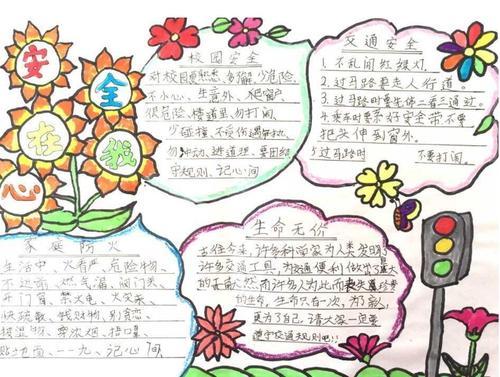 安
全
在
我
心
校园安全
对校园要熟悉、多了解、少危险,
不小心、生意外、爬窗户
很危险、楼道里、勿打闹、
少碰撞、不受伤、遇
勿冲动、进道理、要团结
守规则、记心间
交通安全
1.不乱闯红绿灯.
2.过马路要走人行道。
3.过马路时要先停二看三通过。
4.乘车时要系好安全带不要
把头伸到窗外.
5过马路时 不要打闹。
家庭防火
生活中、火看严、危险物、
不近前、燃气漏、阀门关、
开门窗、禁火电、火
快疏散、钱财物、别贪恋、
披湿物、穿浓烟、捂口鼻、
贴地面、一一九、记心间
生命无价
古往今来,许多科学家为人类发明了
许多交通工具,为交通便利做出了重大
的贡献,然而许多人为此而丧失宝珍贵
的生命,生命只有一次,为了家人,
更为了自己,请大家一定要
遵守交通规则吧!!